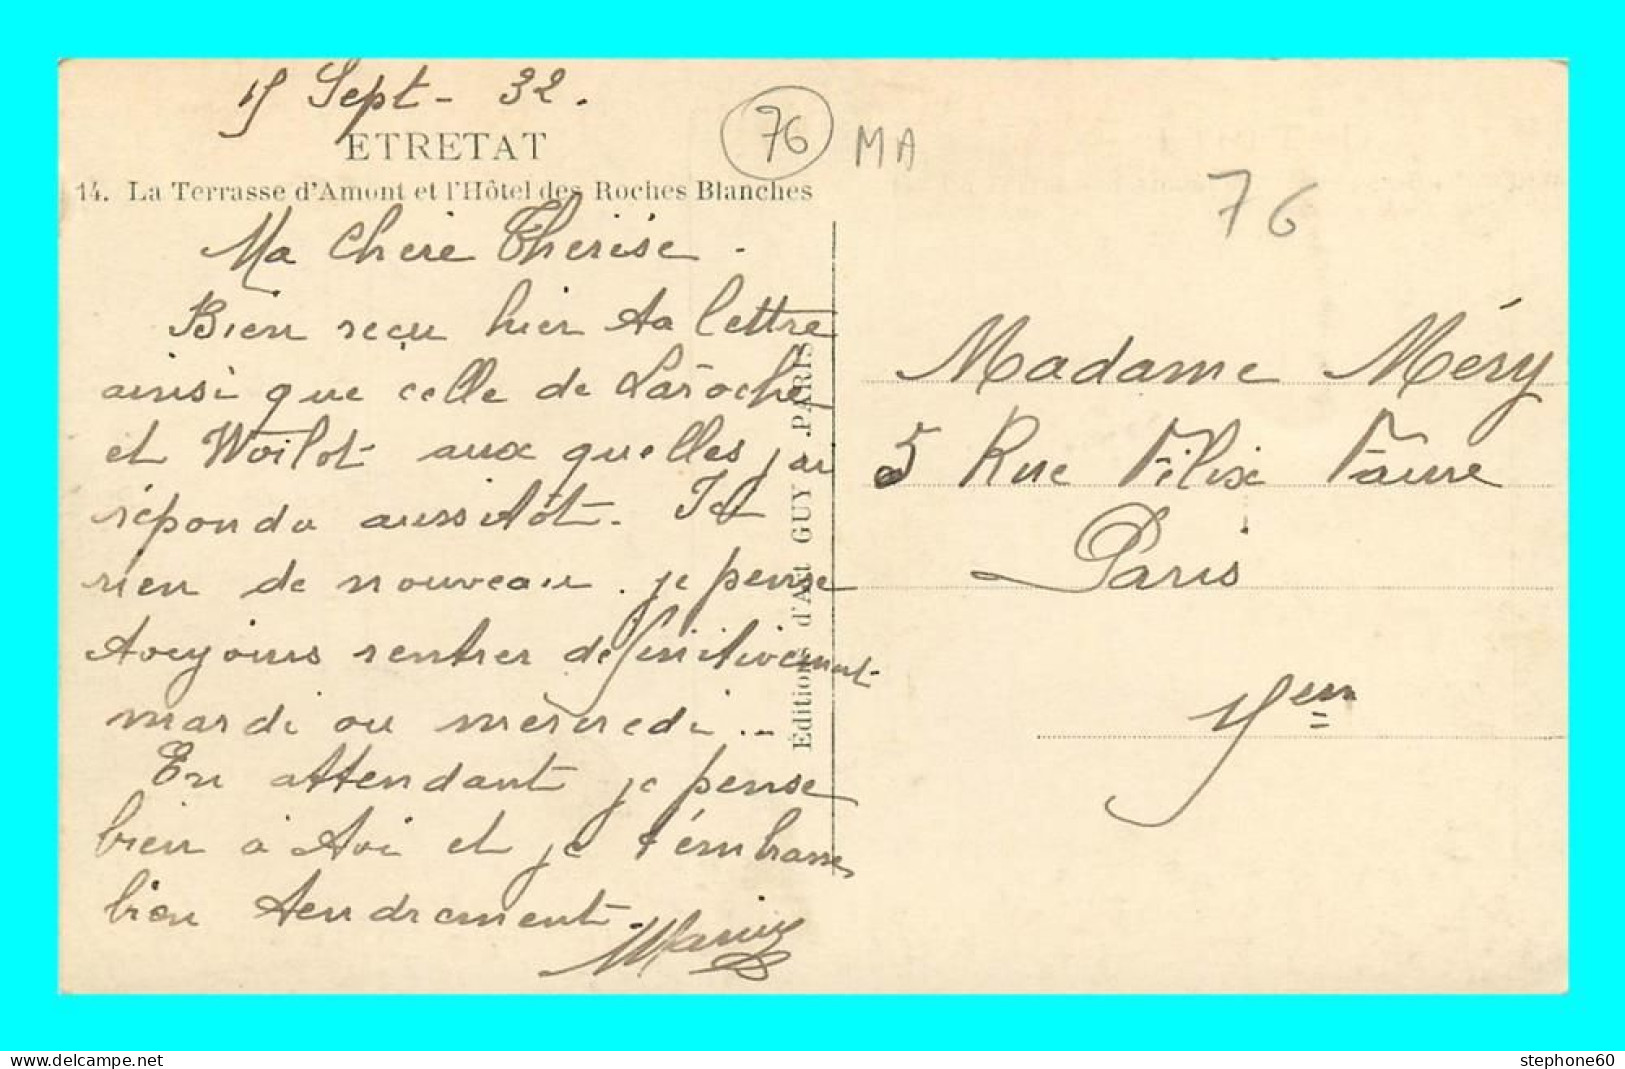 15 Sept - 32.
ETRETAT
14. La Terrasse d'Amont et l'Hôtel des Roches Blanches
76
MA
76
Ma Chère Thérèse.
Bien reçu hier ta lettre
ainsi que celle de Laroche
et Woilot aux quelles j'ai
répondu aussitôt. Ici
rien de nouveau. je pense
toujours rentrer définitivement
mardi ou mercredi..-
En attendant je pense
bien à toi et je t'embrasse
bien tendrement.
Éditions d'Art GUY. PARIS
Madame Méry
5 Rue Félix Faure
Paris
stephone60